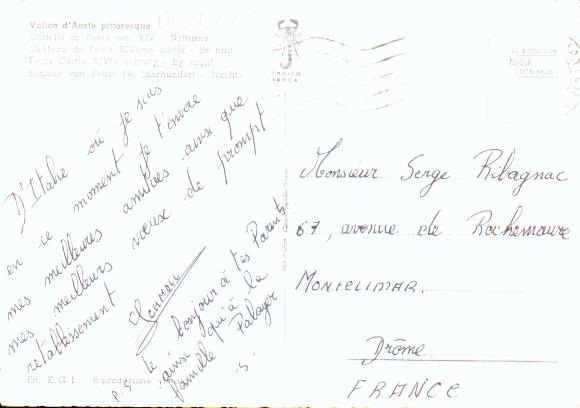 Vallée d'Aoste pittoresque
Castello di Fenis sec. XIV - Notturno
Château de Fenis XIVème siècle - de nuit
Fenis Castle XIVth century - by night
Schloss von Fenis 14. Jahrhundert - Nachts
ENRICO
D'Italie où je suis
en ce moment je t'envoie
mes meilleures amitiés ainsi que
mes meilleurs vœux de prompt
retablissement
P.S le bonjour à tes Parents
ainsi qu'à la
famille Palager
-S-
Ed. E.G.I. Riproduzione
Monsieur Serge Ribagnac
67, avenue de Rochemaure
MONTELIMAR.
Drôme.
FRANCE
Kodak